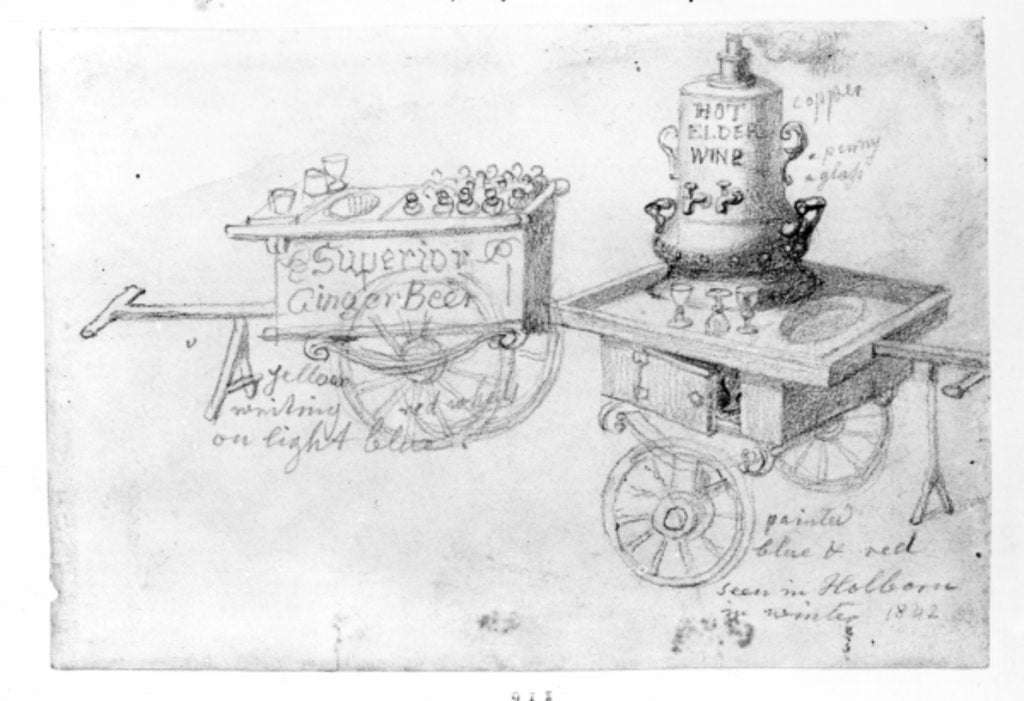 Superior
Ginger Beer
Yellow
writing
on light blue
red wheel
HOT
ELDER
WINE
copper
a penny
a glass
painted
blue & red
seen in Holborn
in winter 1842